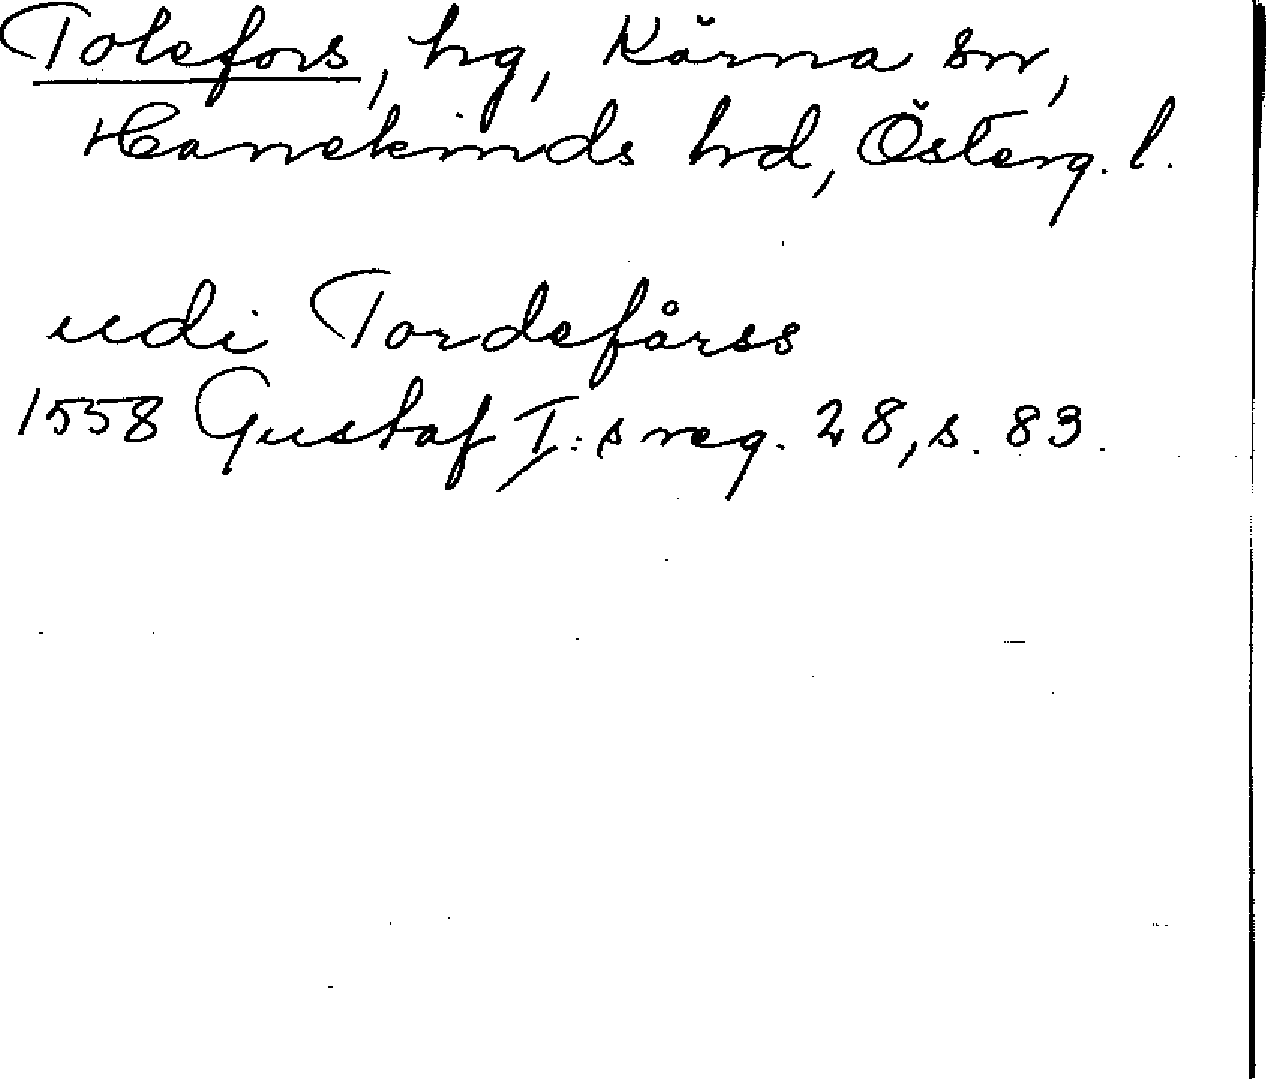 Tolefors, hg, Kärna sn,
Hanekinds hrd, Österg. l.
udi Tordefårss
1558 Gustaf I:s reg. 28, s. 83.